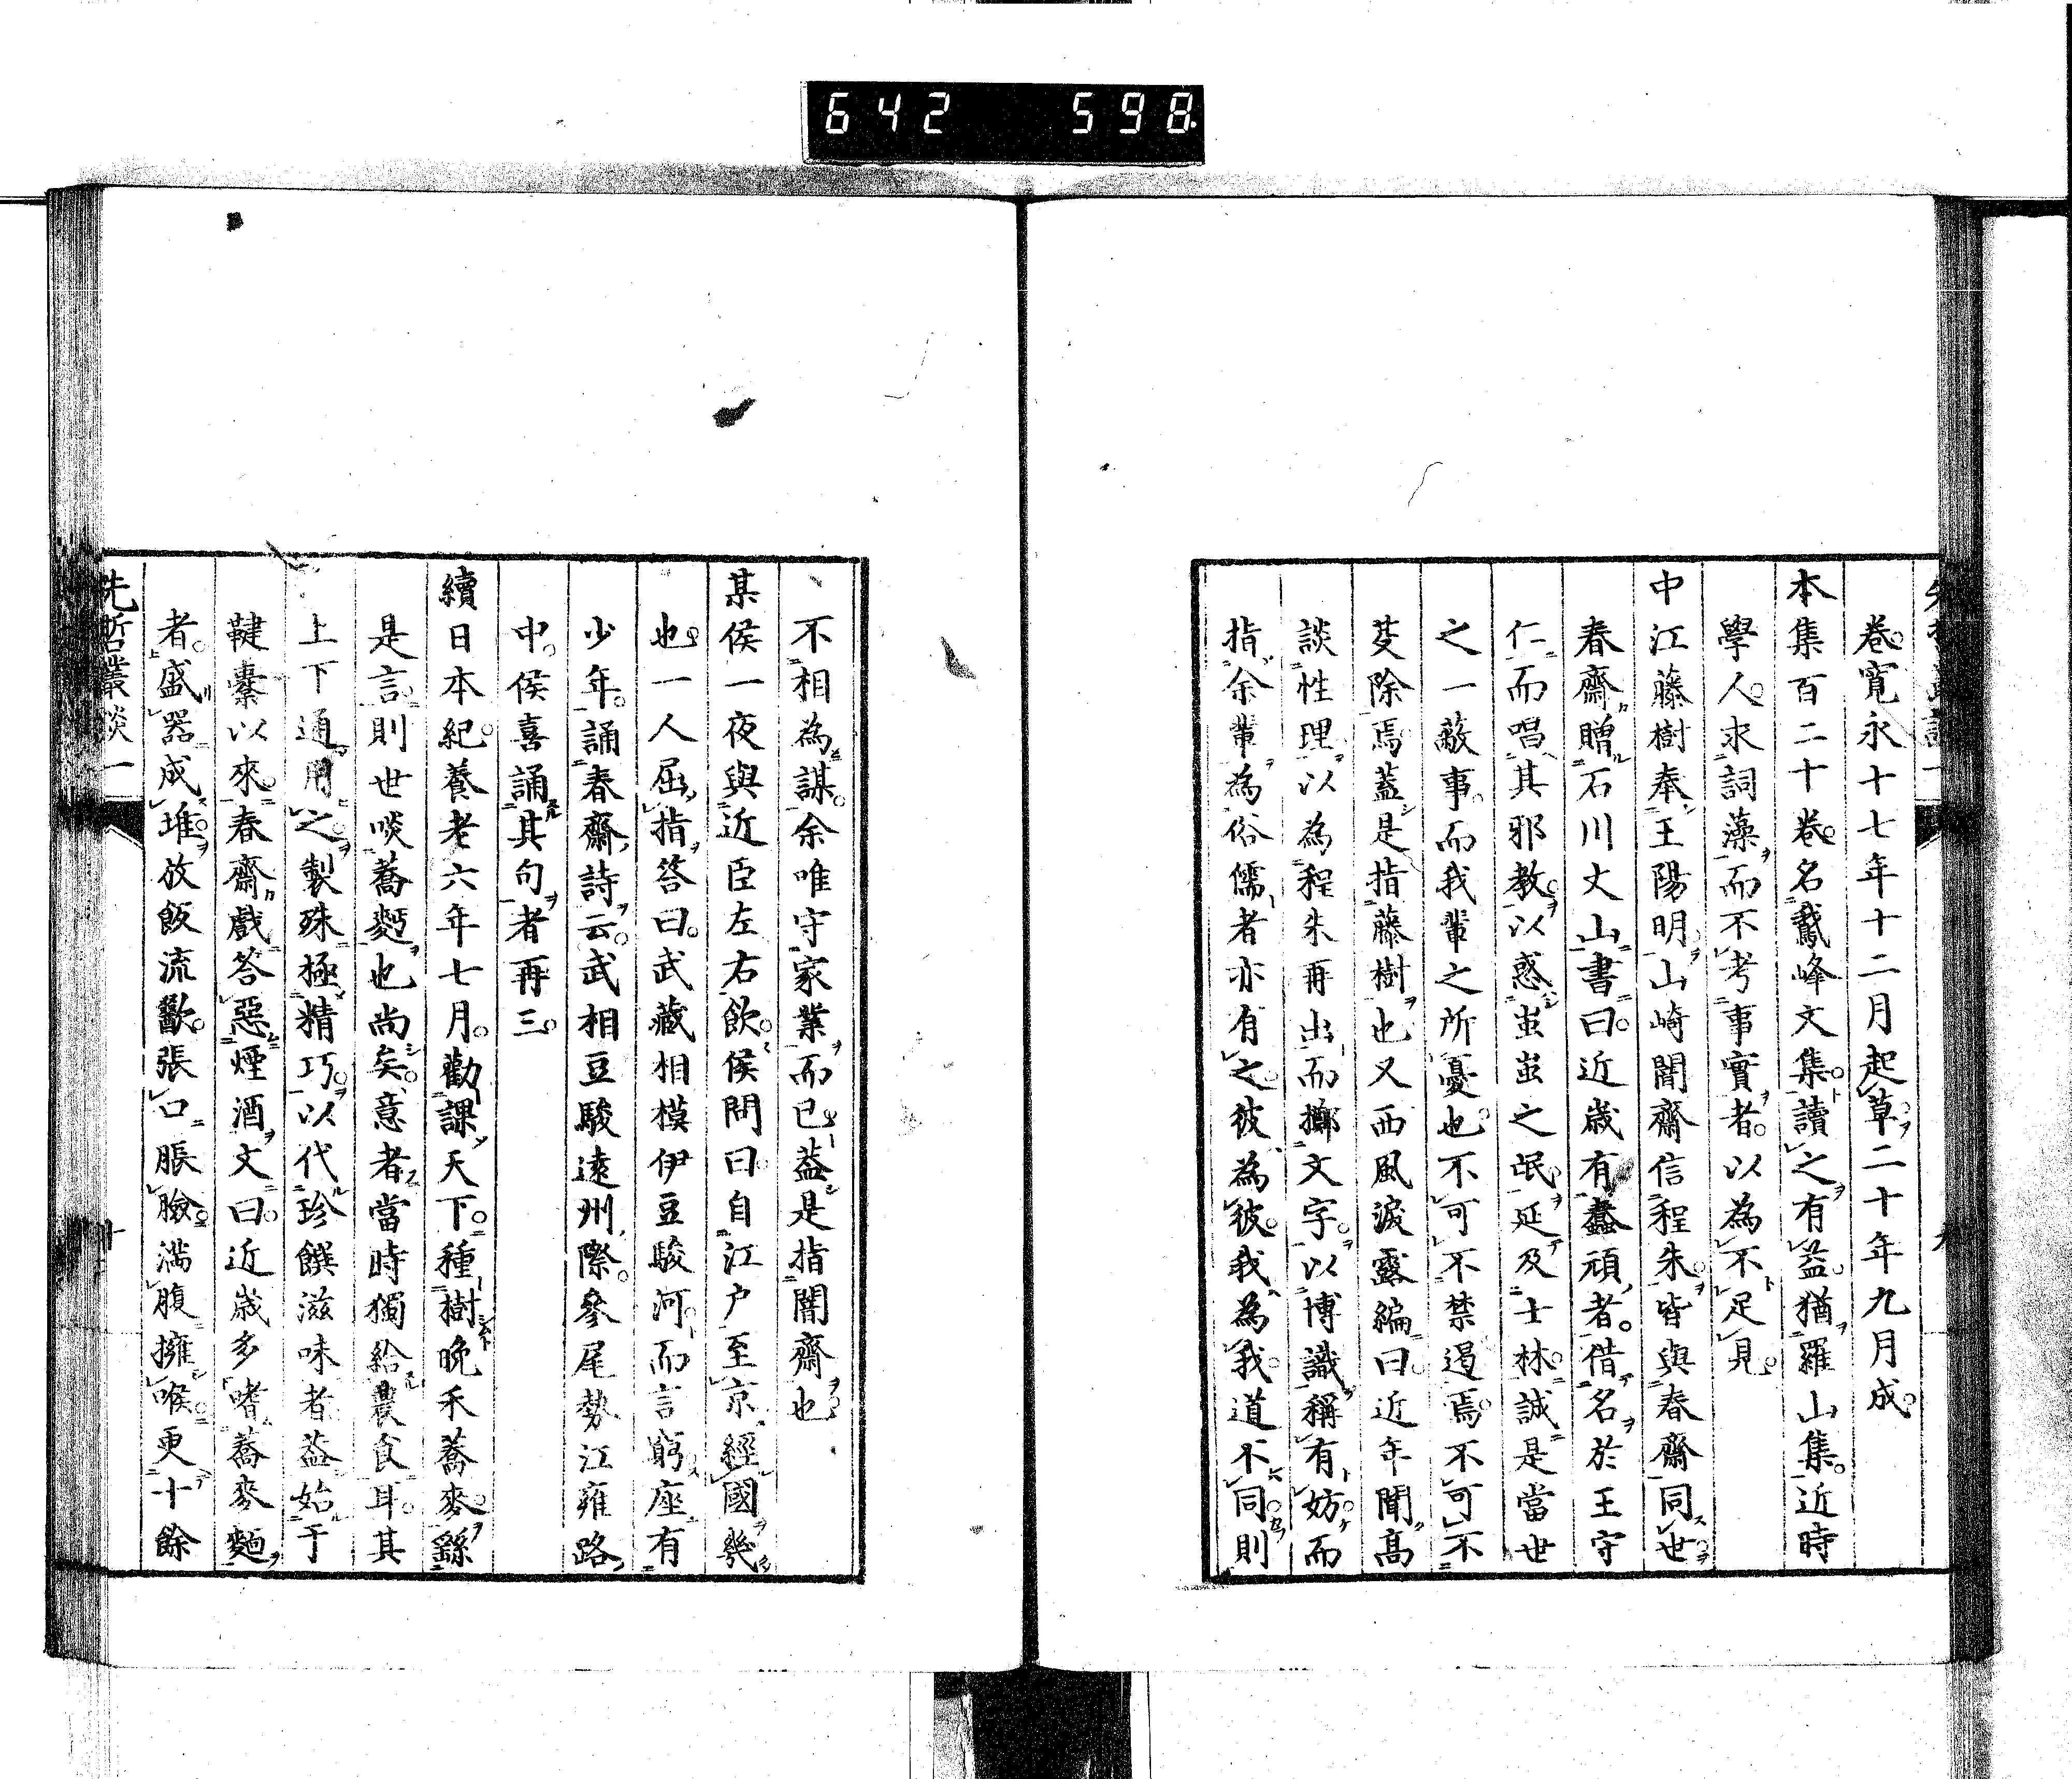 642 598
卷寛永十七年十二月起草二十年九月成
本集百二十卷名鵞峰文集讀之有益猶羅山集近時
學人求詞藻而不考事實者以為不足見
中江藤樹奉王陽明山崎闇齋信程朱皆與春齋同世
春齋贈石川丈山書曰近歲有蠢頑者借名於王守
仁而唱其邪教以惑蚩蚩之氓延及士林誠是當世
之一敵事而我輩之所憂也不可不禁遏焉不可不
芟除焉蓋是指藤樹也又西風淚露編曰近年聞高
談性理以為程朱再出而擲文字以博識稱有妨而
指余輩為俗儒者亦有之彼為彼我為我道不同則
不相為謀余唯守家業而已蓋是指闇齋也
某侯一夜與近臣左右飲侯問曰自江戶至京經國幾
也一人屈指答曰武藏相模伊豆駿河而言窮座有
少年誦春齋詩云武相豆駿遠州際參尾勢江雍路
中侯喜誦其句者再三
續日本紀養老六年七月勸課天下種樹晚禾蕎麥繇
是言則世啖蕎麪也尚矣意者當時獨給農食耳其
上下通用之製殊極精巧以代珍饌滋味者蓋始于
鞬橐以來春齋戲答惡煙酒文曰近歲多嗜蕎麥麵
者盛器成堆放飯流歠張口脹臉滿腹擁喉更十餘
先哲叢談一
十